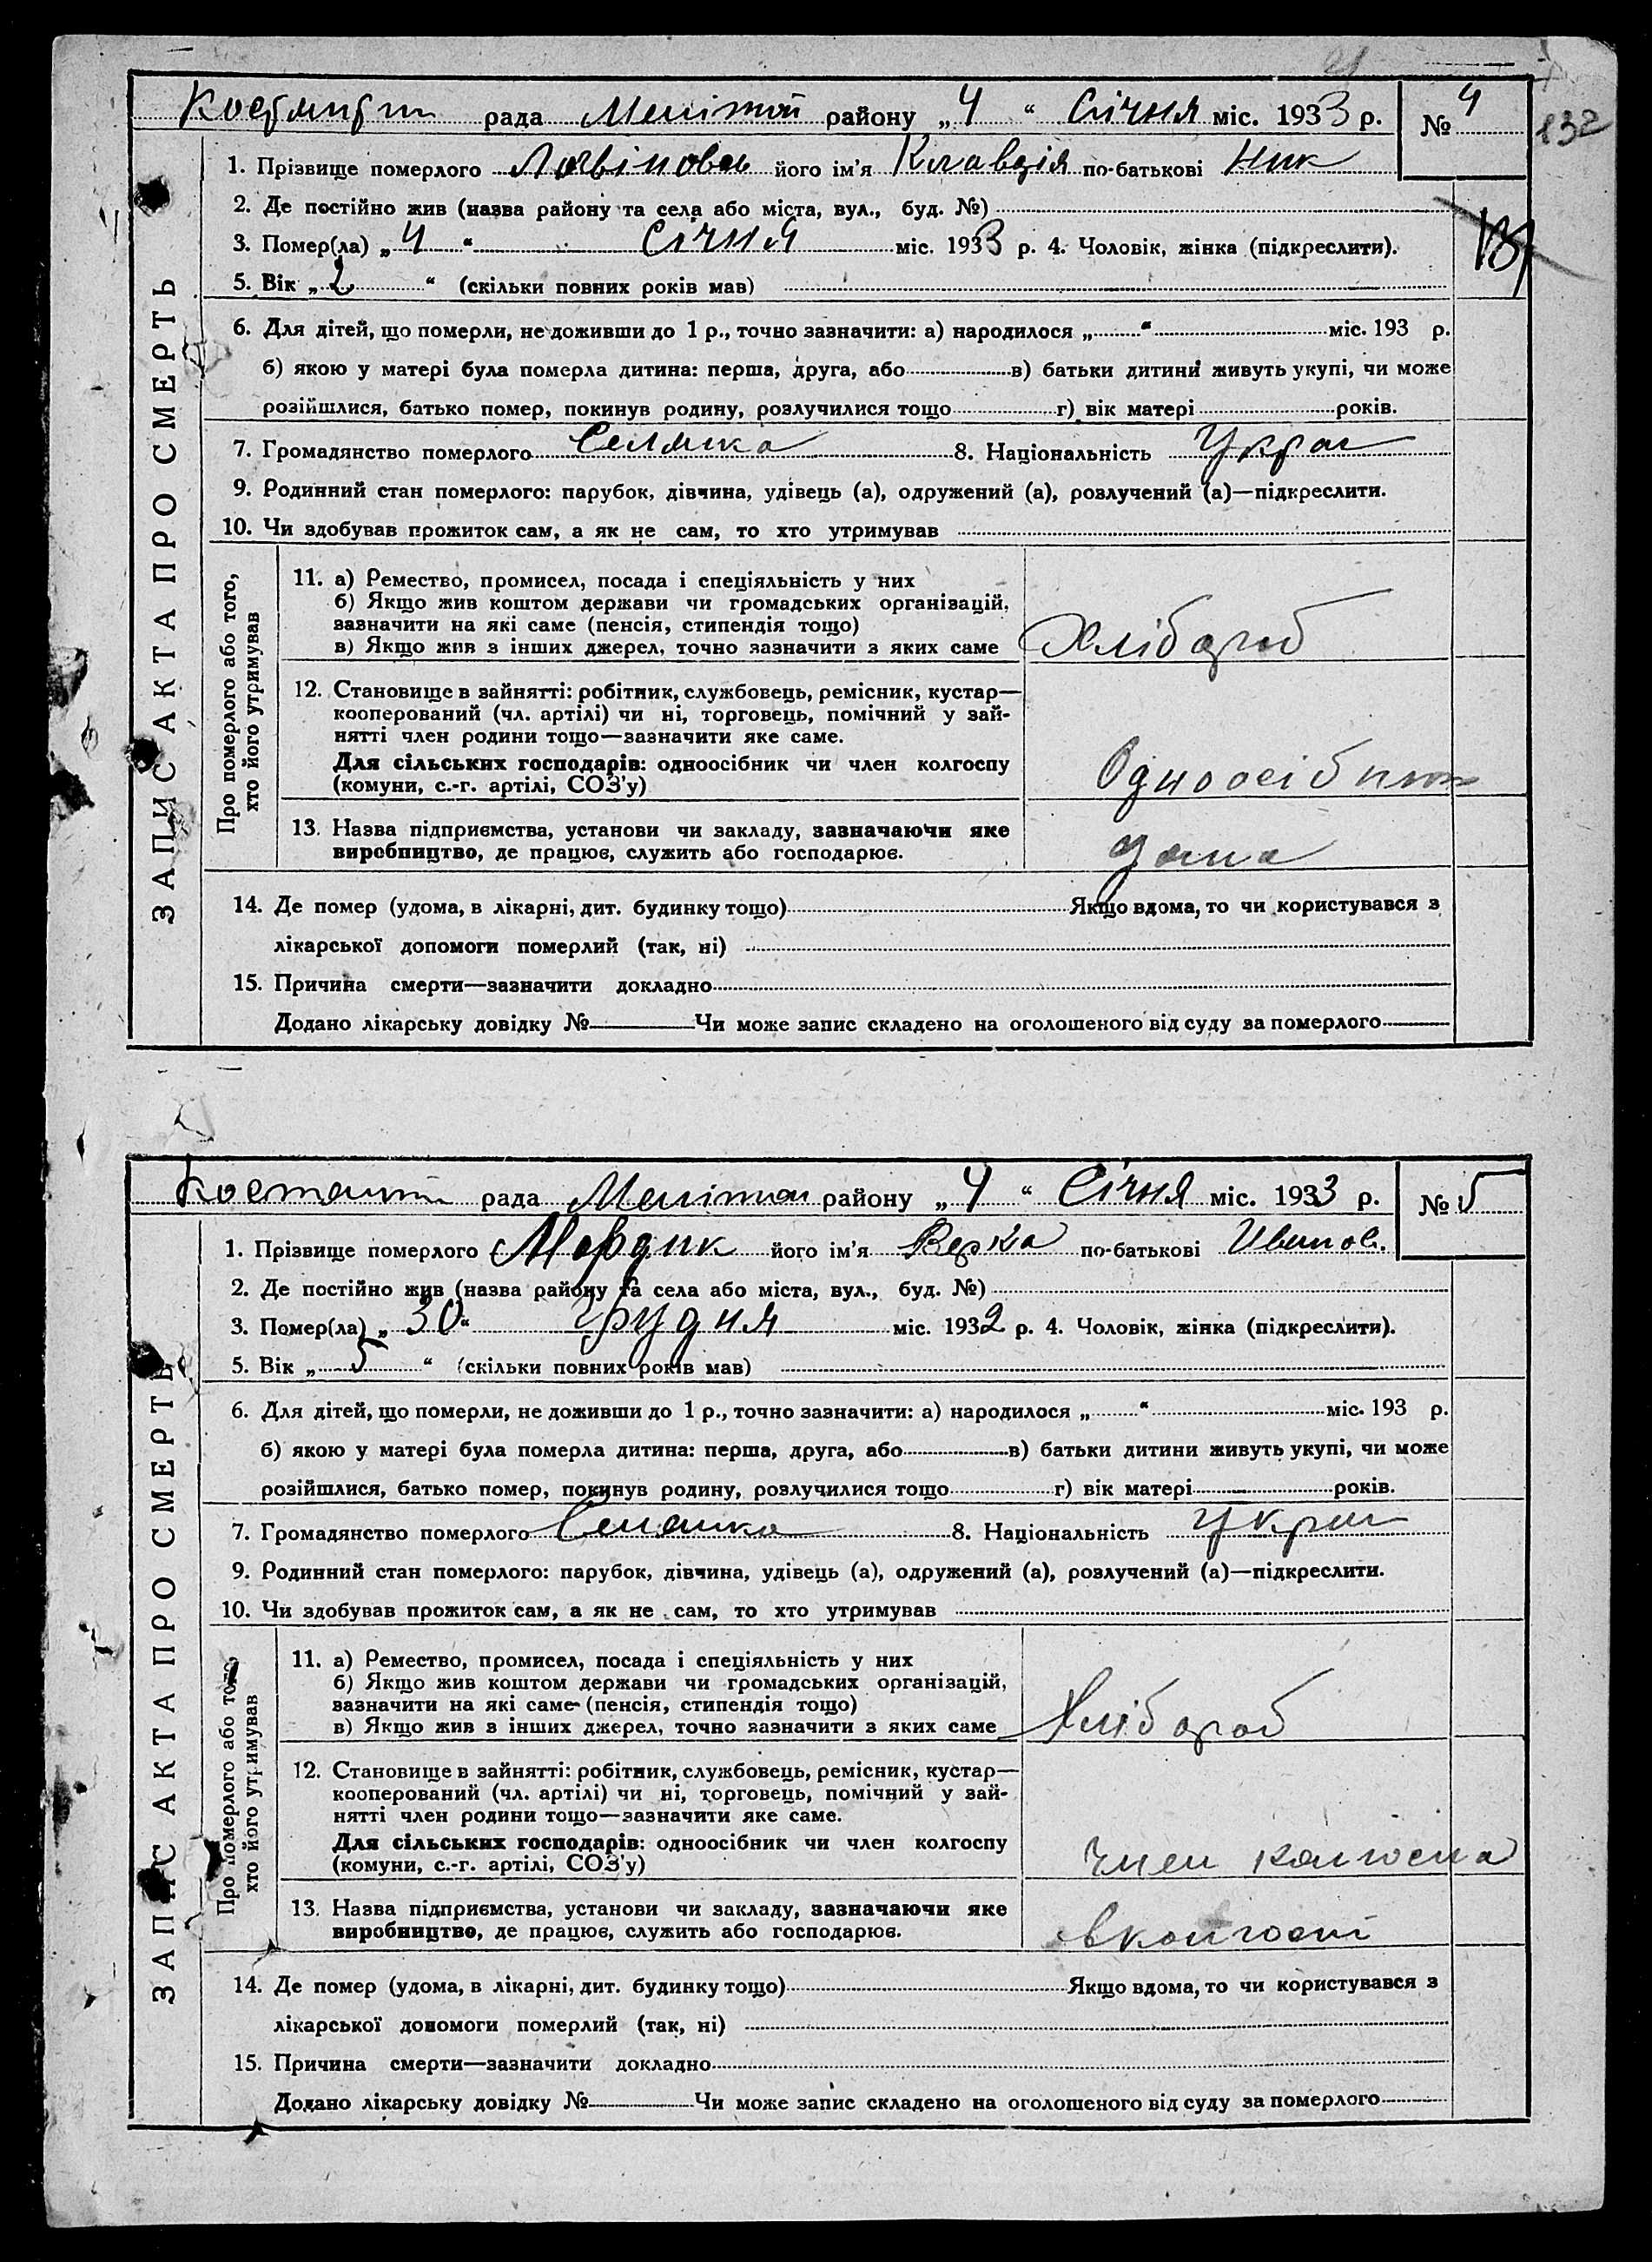 рада Меліт району „4“ Січня міс. 1933 р. № 4
132
1. Прізвище померлого Логвінова його ім'я Клавдія по-батькові Ник
2. Де постійно жив (назва району та села або міста, вул., буд. №)
3. Помер(ла) „4“ Січня міс. 1933 р. 4. Чоловік, жінка (підкреслити).
5. Вік „2“ (скільки повних років мав)
6. Для дітей, що померли, не доживши до 1 р., точно зазначити: а) народилося „ “ міс. 193 р.
б) якою у матері була померла дитина: перша, друга, або в) батьки дитини живуть укупі, чи може
розійшлися, батько помер, покинув родину, розлучилися тощо г) вік матері років.
7. Громадянство померлого Селянка 8. Національність Украї
9. Родинний стан померлого: парубок, дівчина, удівець (а), одружений (а), розлучений (а)—підкреслити.
10. Чи здобував прожиток сам, а як не сам, то хто утримував
ЗАПИС АКТА ПРО СМЕРТЬ
Про померлого або того,
хто його утримував
11. а) Ремество, промисел, посада і спеціяльність у них
б) Якщо жив коштом держави чи громадських організацій,
зазначити на які саме (пенсія, стипендія тощо)
в) Якщо жив з інших джерел, точно зазначити з яких саме
Хлібороб
12. Становище в зайнятті: робітник, службовець, ремісник, кустар—
кооперований (чл. артілі) чи ні, торговець, помічний у зай-
нятті член родини тощо—зазначити яке саме.
Для сільських господарів: одноосібник чи член колгоспу
(комуни, с.-г. артілі, СОЗ'у)
Одноосібник
13. Назва підприємства, установи чи закладу, зазначаючи яке
виробництво, де працює, служить або господарює.
дома
14. Де помер (удома, в лікарні, дит. будинку тощо) Якщо вдома, то чи користувався з
лікарської допомоги померлий (так, ні)
15. Причина смерти—зазначити докладно
Додано лікарську довідку № Чи може запис складено на оголошеного від суду за померлого
рада Меліт району „4“ Січня міс. 1933 р. № 5
1. Прізвище померлого Мордик його ім'я Верка по-батькові Иванов.
2. Де постійно жив (назва району та села або міста, вул., буд. №)
3. Помер(ла) „30“ Грудня міс. 1932 р. 4. Чоловік, жінка (підкреслити).
5. Вік „5“ (скільки повних років мав)
6. Для дітей, що померли, не доживши до 1 р., точно зазначити: а) народилося „ “ міс. 193 р.
б) якою у матері була померла дитина: перша, друга, або в) батьки дитини живуть укупі, чи може
розійшлися, батько помер, покинув родину, розлучилися тощо г) вік матері років.
7. Громадянство померлого Селянка 8. Національність Украї
9. Родинний стан померлого: парубок, дівчина, удівець (а), одружений (а), розлучений (а)—підкреслити.
10. Чи здобував прожиток сам, а як не сам, то хто утримував
ЗАПИС АКТА ПРО СМЕРТЬ
Про померлого або того,
хто його утримував
11. а) Ремество, промисел, посада і спеціяльність у них
б) Якщо жив коштом держави чи громадських організацій,
зазначити на які саме (пенсія, стипендія тощо)
в) Якщо жив з інших джерел, точно зазначити з яких саме
Хлібороб
12. Становище в зайнятті: робітник, службовець, ремісник, кустар—
кооперований (чл. артілі) чи ні, торговець, помічний у зай-
нятті член родини тощо—зазначити яке саме.
Для сільських господарів: одноосібник чи член колгоспу
(комуни, с.-г. артілі, СОЗ'у)
Член колгоспа
13. Назва підприємства, установи чи закладу, зазначаючи яке
виробництво, де працює, служить або господарює.
в колгоспі
14. Де помер (удома, в лікарні, дит. будинку тощо) Якщо вдома, то чи користувався з
лікарської допомоги померлий (так, ні)
15. Причина смерти—зазначити докладно
Додано лікарську довідку № Чи може запис складено на оголошеного від суду за померлого